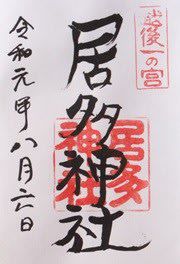 越後一の宮
居多神社
居多神社
令和元年八月六日